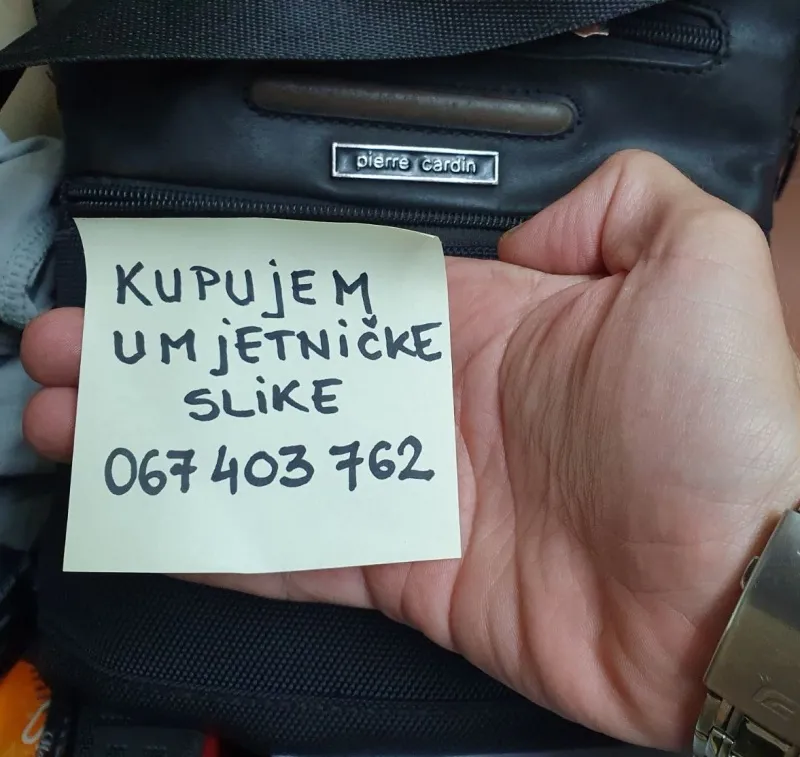 pierre cardin
KUPUjEM
UMjETNiČKE
SLiKE
067 403 762